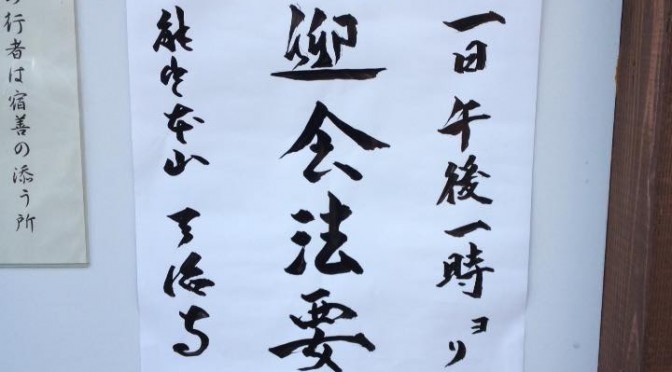 一日午後一時ヨリ
迎会法要
本山
行者は宿善の添う所